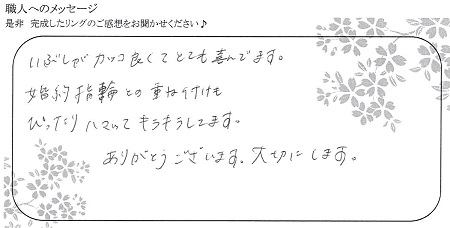 職人へのメッセージ
是非 完成したリングのご感想をお聞かせください♪
いぶしがカッコ良くてとても喜んでます。
婚約指輪との重ね付けも
ぴったりハマってキラキラしてます。
ありがとうございます。大切にします。